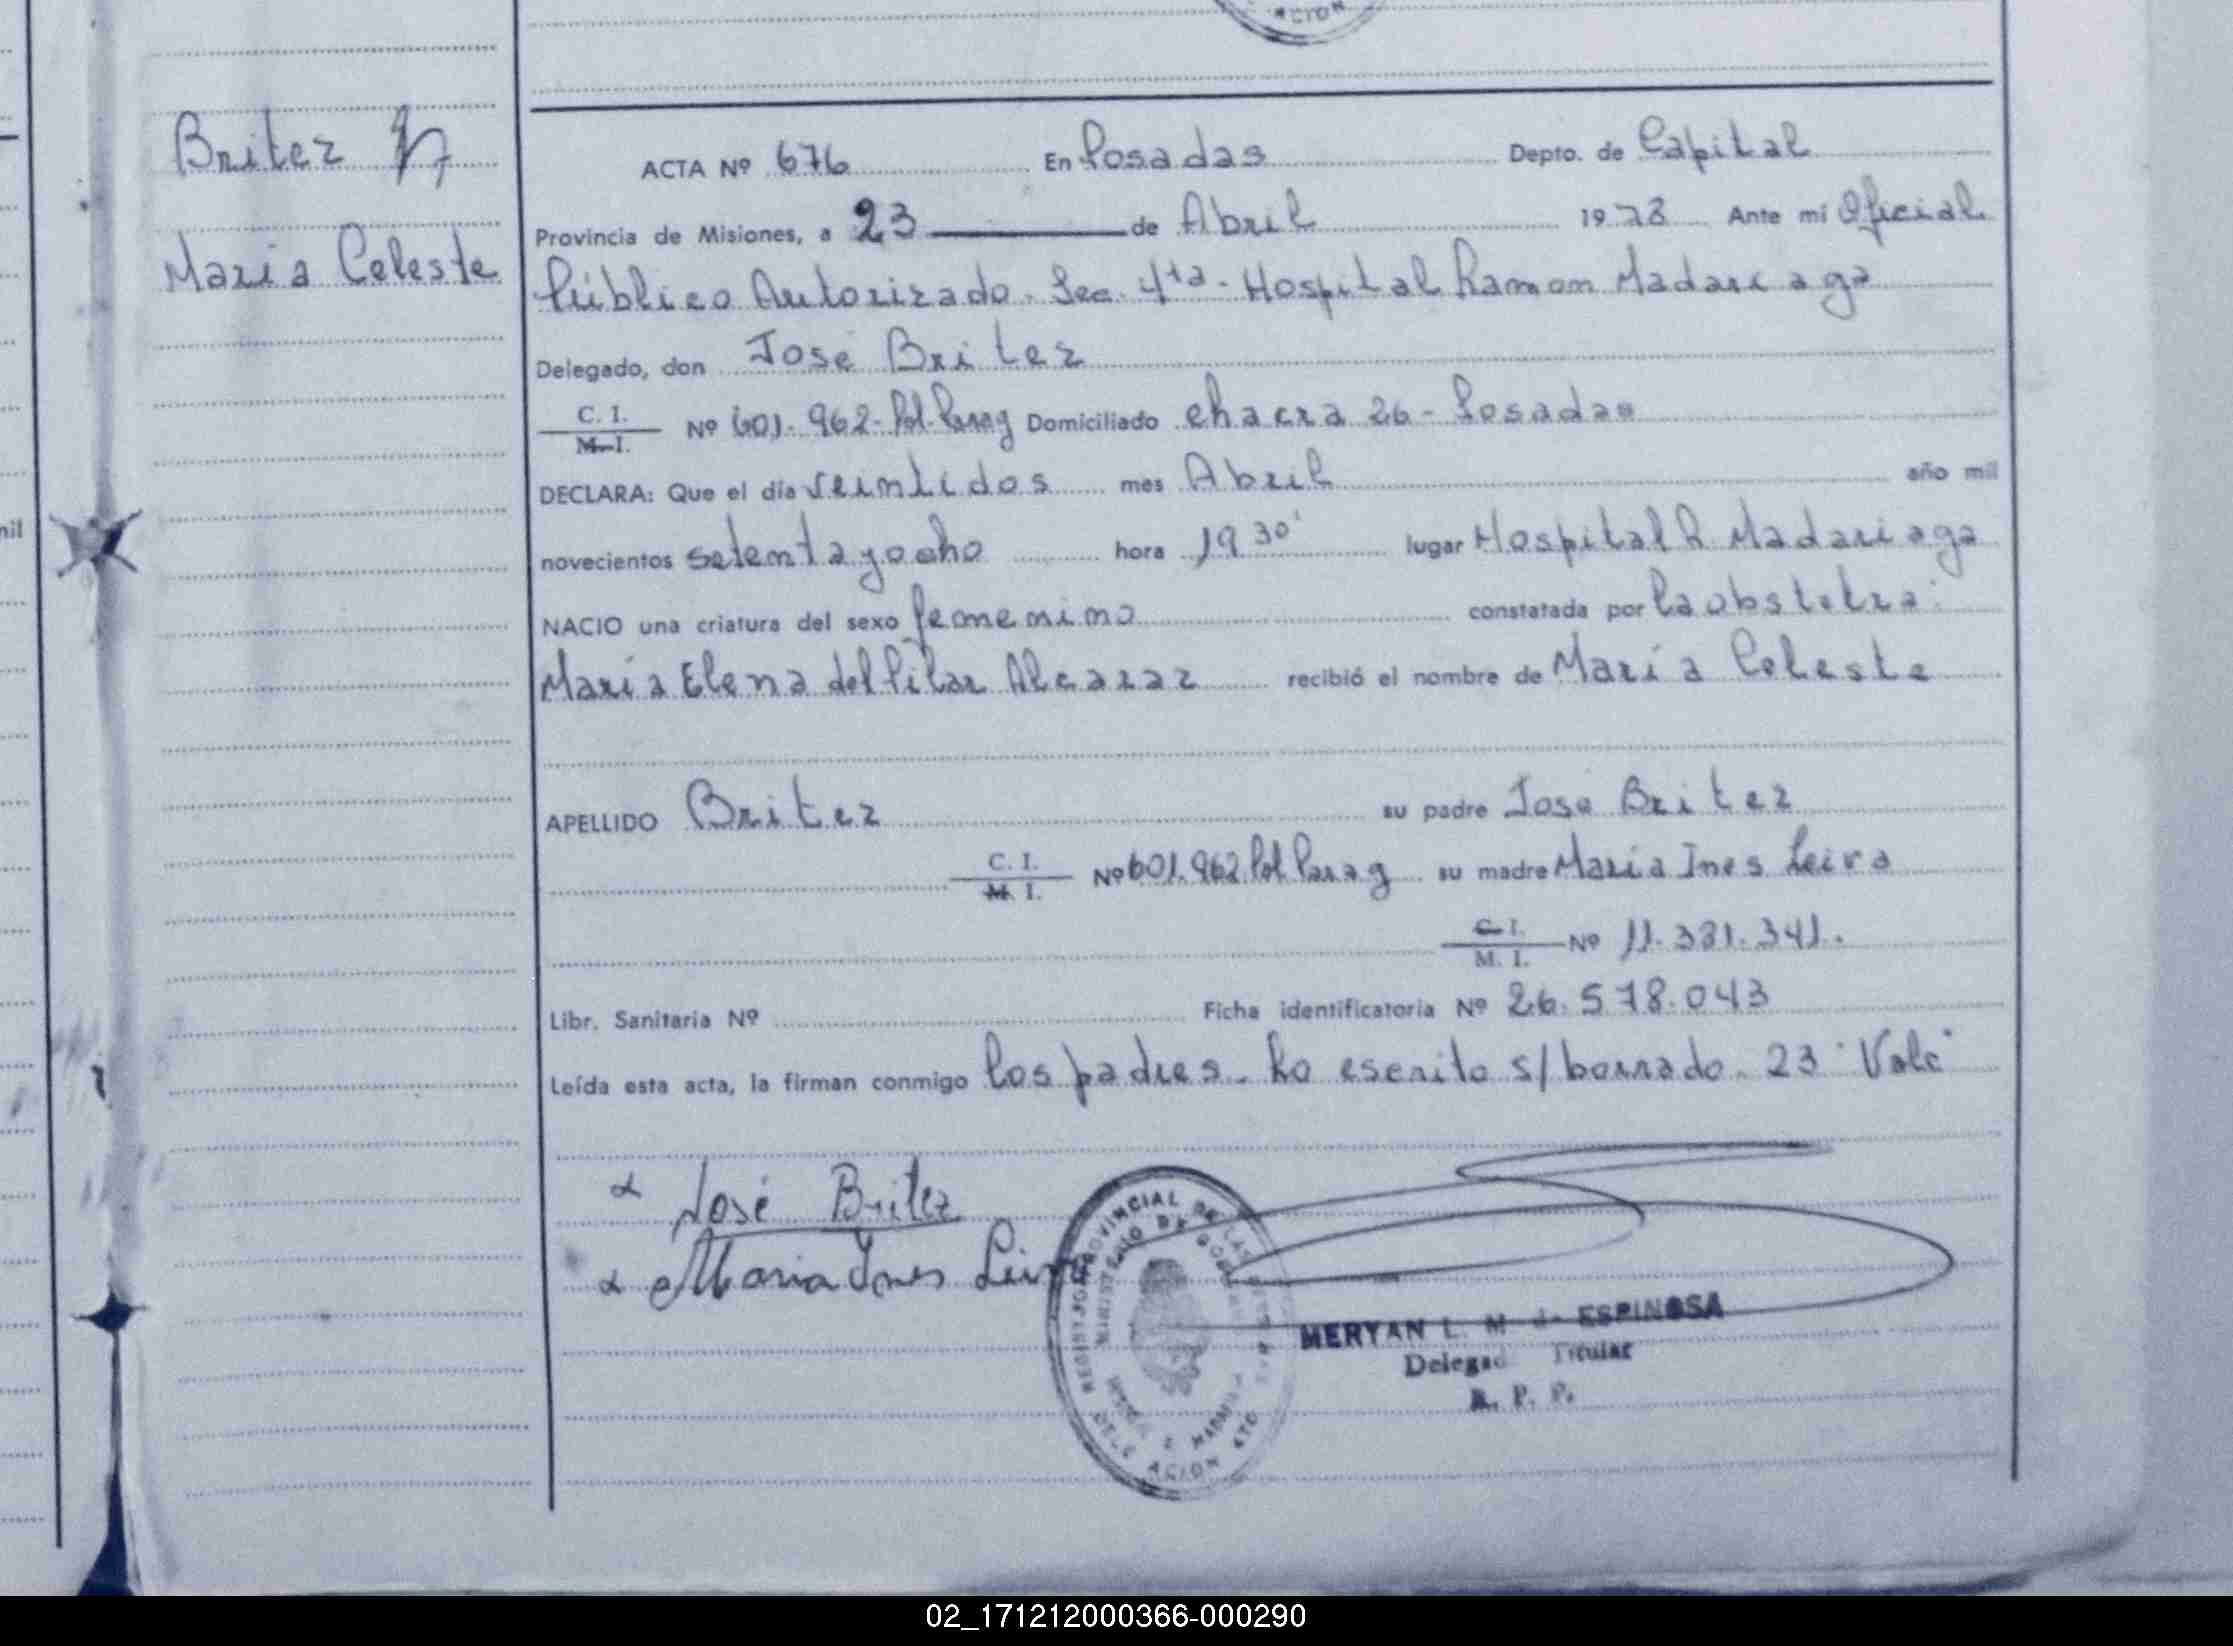 ACION
Britez
Maria Celeste
ACTA Nº 676 En Posadas Depto. de Capital
Provincia de Misiones, a 23 de Abril 1978 Ante mi Oficial
Público Autorizado. Sec. 4ta - Hospital Ramon Madariaga
Delegado, don José Britez
C. I.
M. I. Nº 601.962-Pol. Parag Domiciliado chacra 26 - Posadas
DECLARA: Que el día veintidos mes Abril año mil
novecientos setenta y ocho hora 19 30' lugar Hospital R Madariaga
NACIO una criatura del sexo femenino constatada por la obstetra:
María Elena del Pilar Alcaraz recibió el nombre de María Celeste
APELLIDO Britez su padre Jose Britez
C. I.
M. I. Nº 601.962 Pol Parag su madre Maria Ines Leiva
C. I.
M. I. Nº 11.381.341.
Libr. Sanitaria Nº Ficha identificatoria Nº 26.578.043
Leída esta acta, la firman conmigo los padres. Lo escrito s/ borrado. 23 "Vale"
José Britez
Maria Ines Leiva
MERYAN L. M. de ESPINOSA
Delegad Titular
R. P. P.
02_171212000366-000290